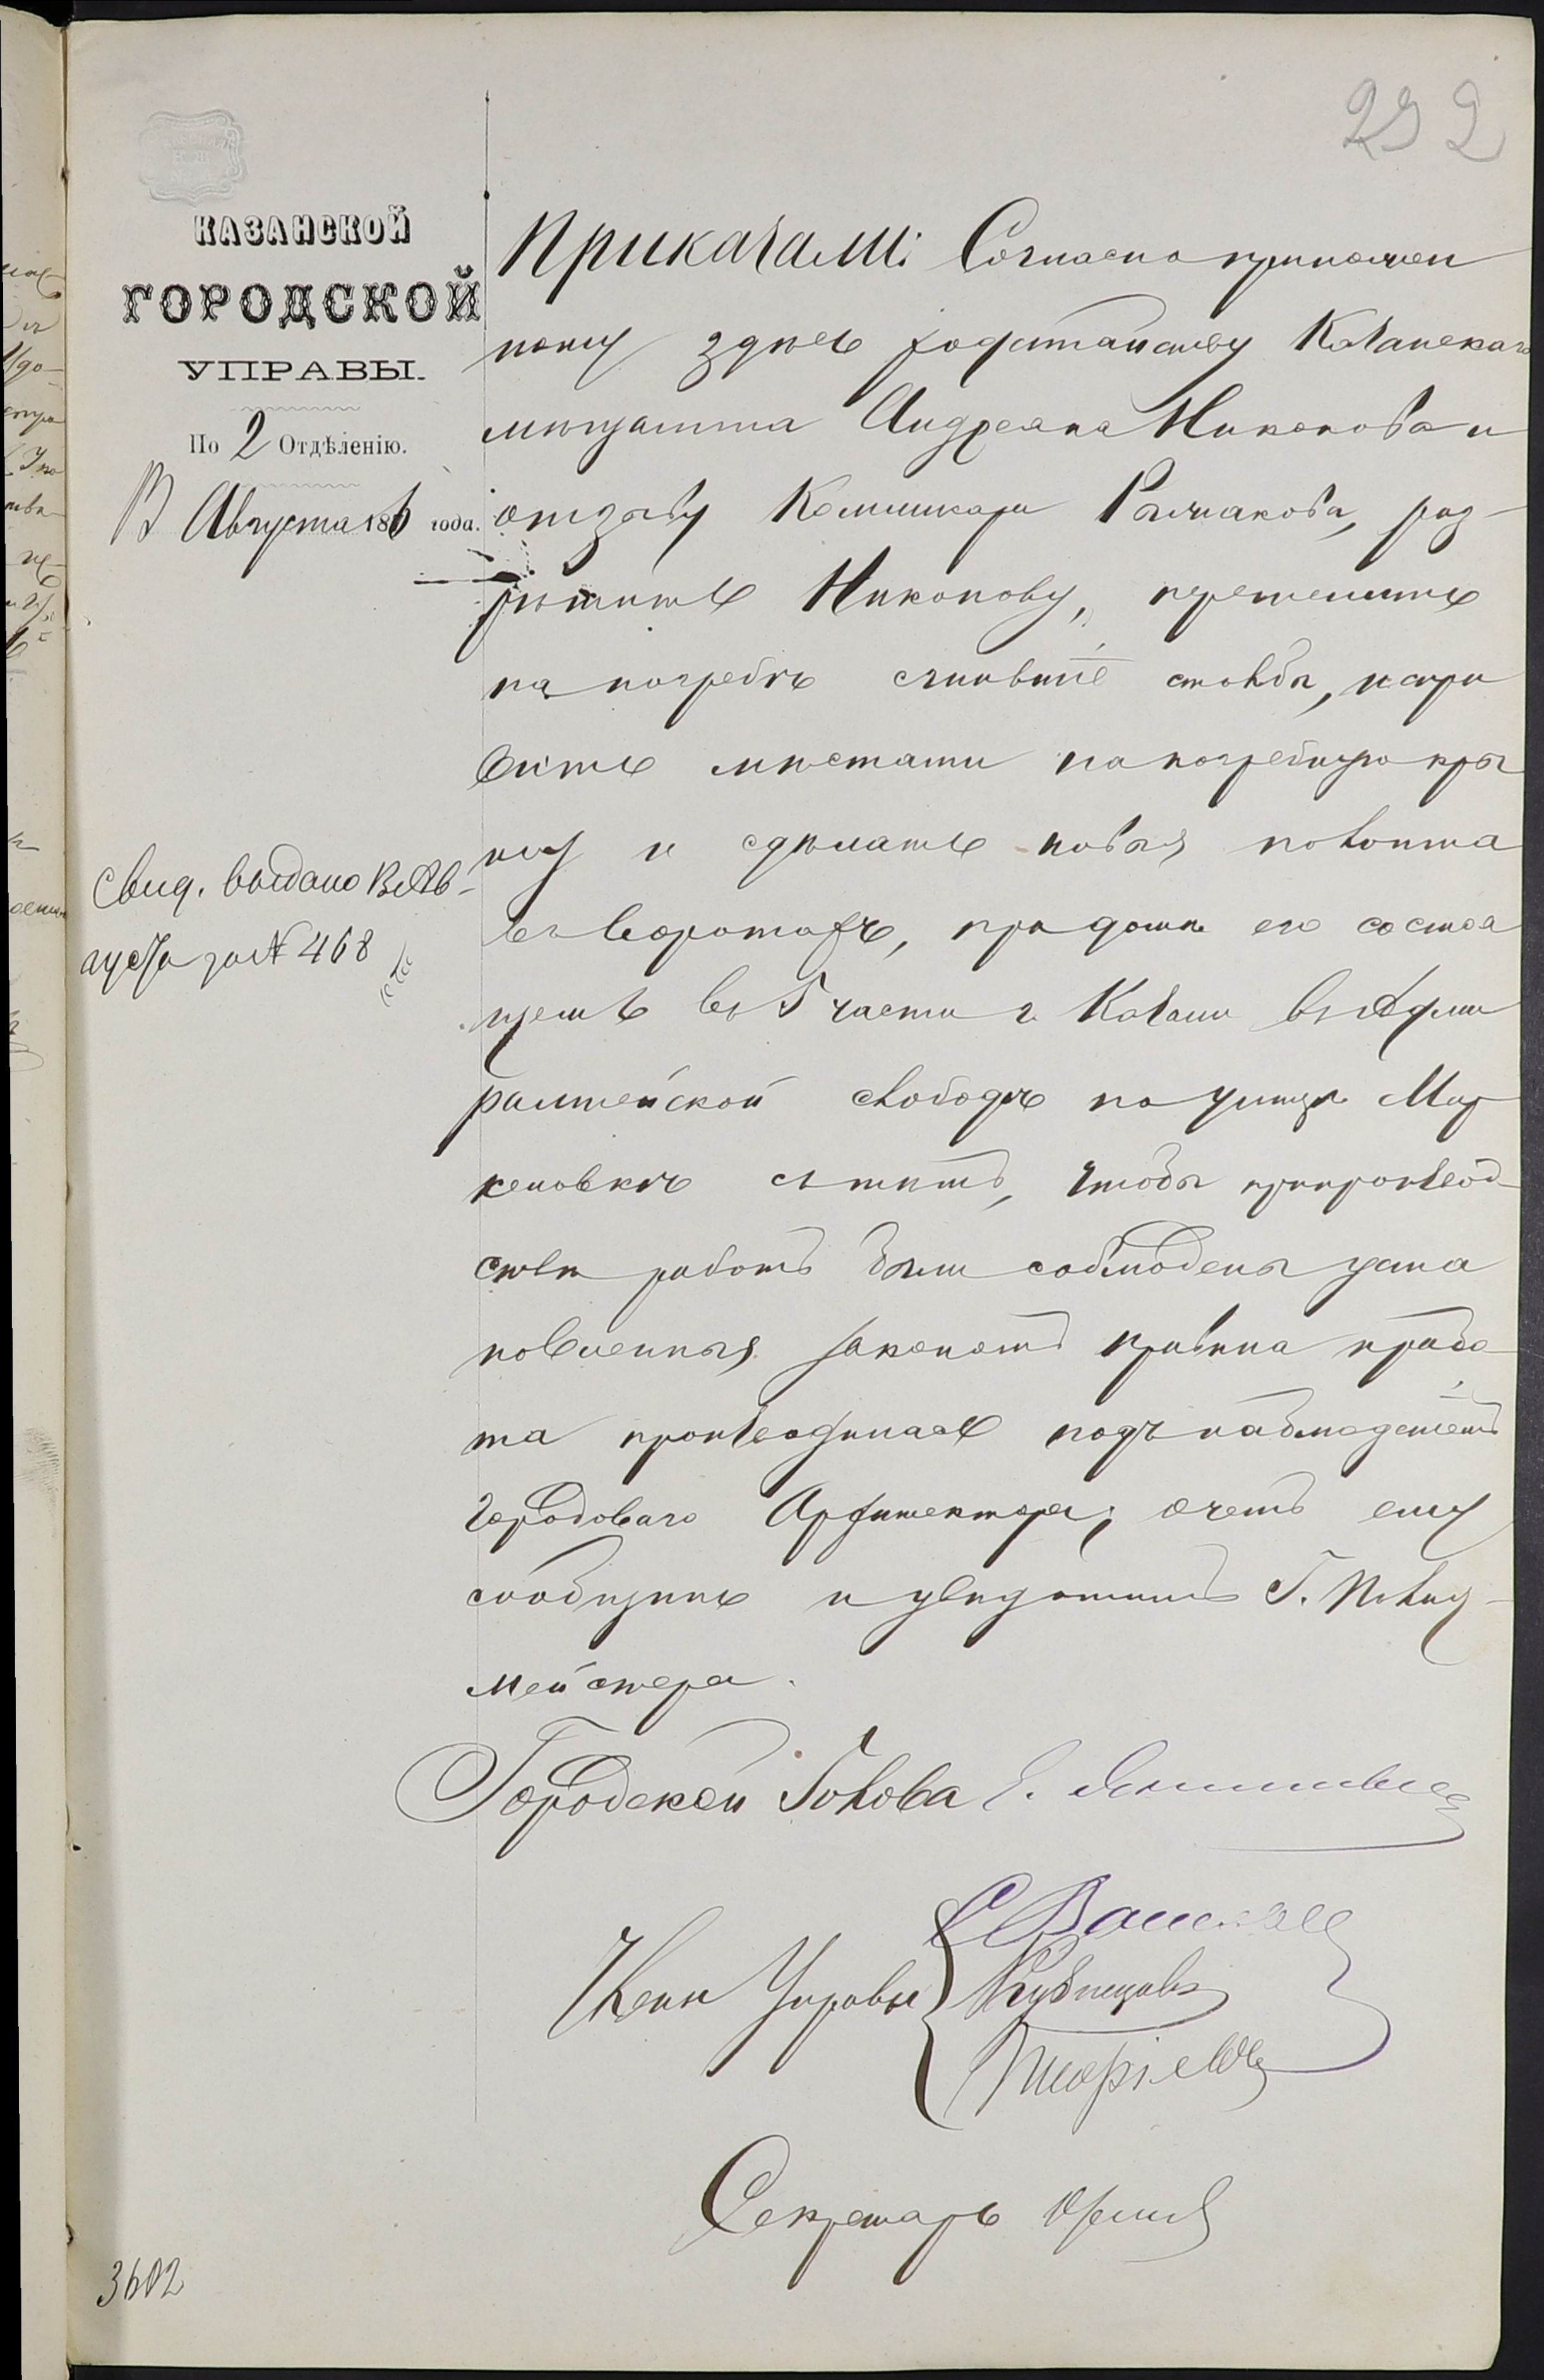 292
КАЗАНСКОЙ
ГОРОДСКОЙ
УПРАВЫ.
По 2 Отдѣленію.
Августа 18 года.
Свид. выдано Ав-
густа за № 468
Приказали: Согласно приложен
ному здѣсь ходатайству Казанскаго
мѣщанина Андреана Никонова и
отзыву Коммисара Рычкакова, раз-
рѣшить Никонову, перемѣнить
на погребѣ сгнившіе столбы, испра
вить мѣстами напогребную кры
шу и сдѣлать новыя полотна
въ воротахъ, при домѣ его состоя
щемъ въ 5 части г. Казани въ Адми
ралтейской слободѣ по улицѣ Мар
келовкѣ съ тѣмъ, чтобы припроизвод-
ствѣ работъ были соблюдены уста
новленныя закономъ правила и рабо
та производилась подъ наблюденіемъ
Городоваго Архитектора; о чемъ ему
сообщить и увѣдомить Г. Полиц-
мейстера.
Городской Голова
Члены Управы
Кузнецовъ
Секретарь
3602